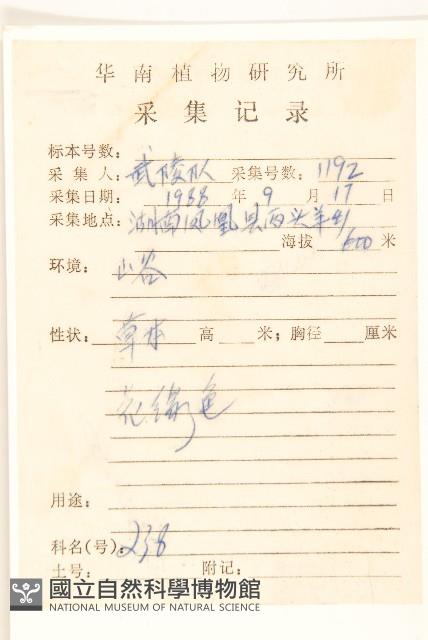 华南植物研究所
采集记录
标本号数：
采集人：武陵队 采集号数：1192
采集日期：1988 年 9 月 17 日
采集地点：湖南凤凰县两头羊
海拔 600 米
环境：山谷
性状：草本 高 米；胸径 厘米
花绿色
用途：
科名(号)：238
土号： 附记：
國立自然科學博物館
NATIONAL MUSEUM OF NATURAL SCIENCE